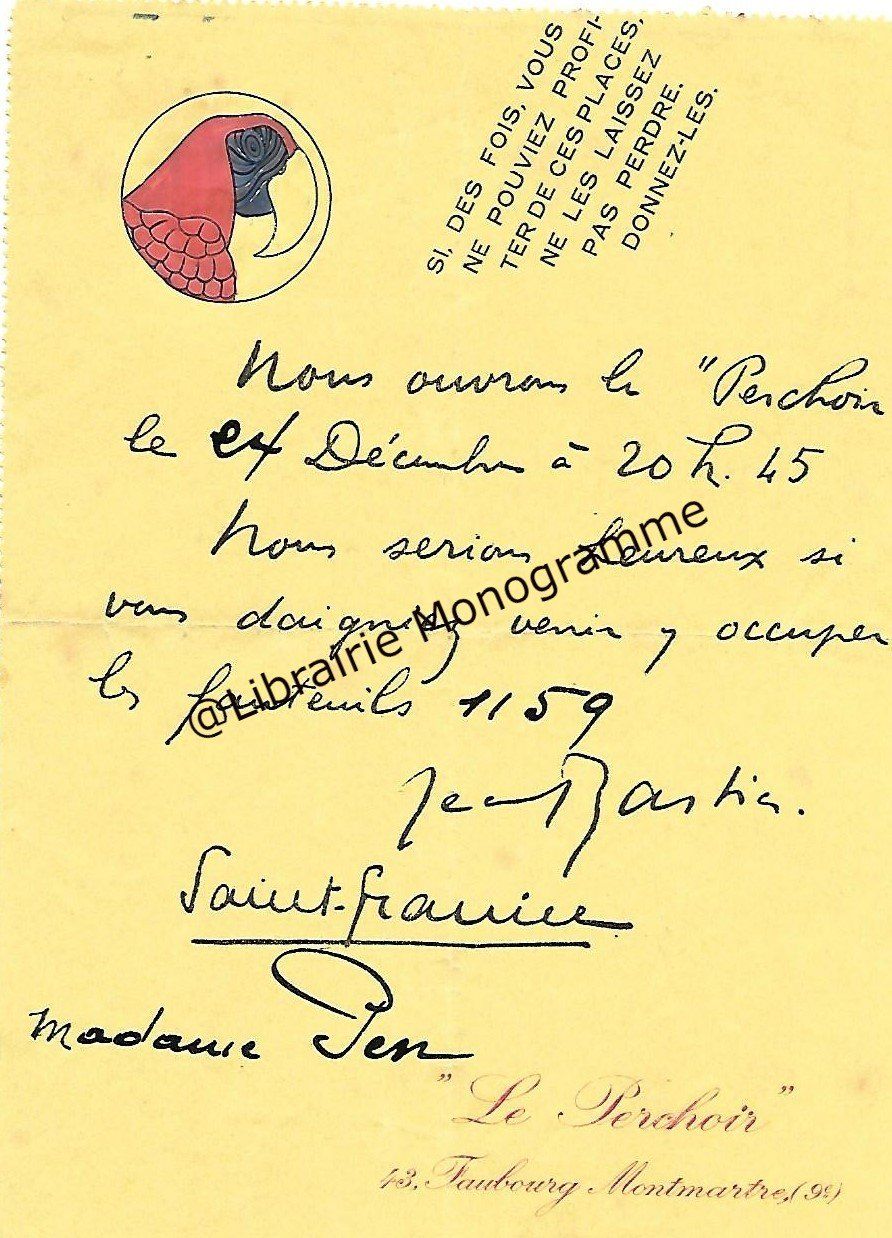 SI, DES FOIS, VOUS
NE POUVIEZ PROFI-
TER DE CES PLACES,
NE LES LAISSEZ
PAS PERDRE.
DONNEZ-LES.
Nous ouvrons le "Perchoir
le Décembre à 20 h. 45
Nous serions heureux si
vous daigniez venir y occuper
les fauteuils 1159
Jean Bastia.
Saint-Granier
Madame
@Librairie Monogramme
"Le Perchoir"
43, Faubourg Montmartre, (9e)